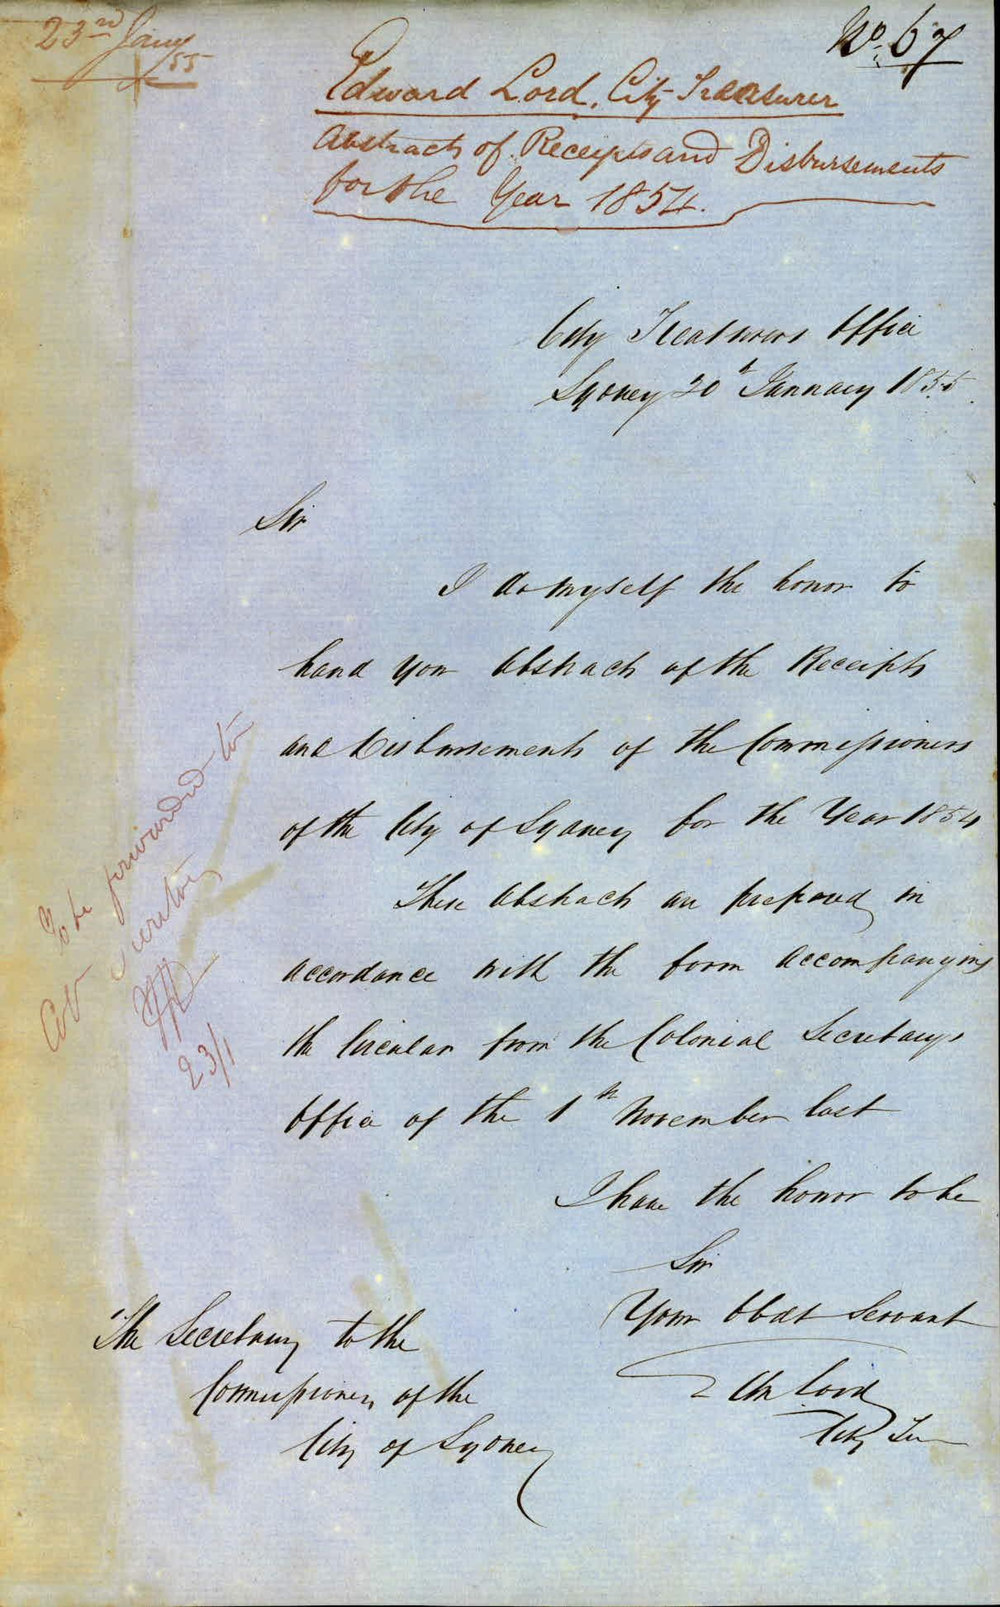 23rd Jany
55
No. 67
Edward Lord, City Treasurer
Abstracts of Receipts and Disbursements
for the Year 1854.
City Treasurers Office
Sydney 20th January 1855
Sir
I do myself the honor to
hand you Abstracts of the Receipts
and Disbursements of the Commissioners
of the City of Sydney for the Year 1854
These Abstracts are prepared in
accordance with the form accompanying
the Circular from the Colonial Secretarys
Office of the 1th November last
I have the honor to be
Sir
Your Obdt Servant
Edw Lord
City Tr
The Secretary to the
Commissioners of the
City of Sydney
To be forwarded to
23/1